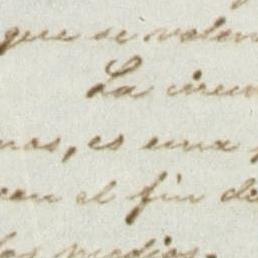 que se valen
La circun
nos, es una
en el fin de
los medios.